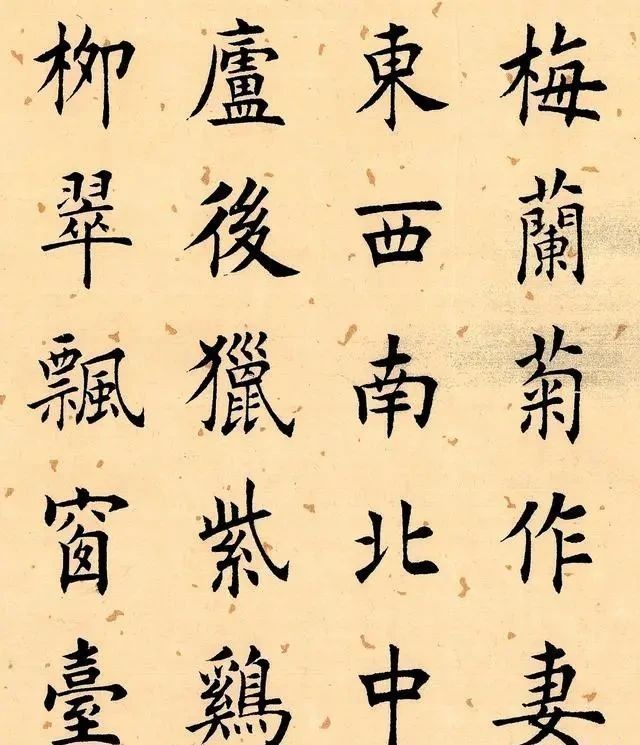 梅蘭菊作妻
東西南北中
廬後獵紫鷄
柳翠飄窗臺